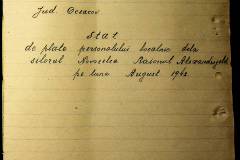 Jud. Oceacov
Stat
de plata personalului localnic dela
silozul Novoselca Raional Alexandrfeld
pe luna August 194